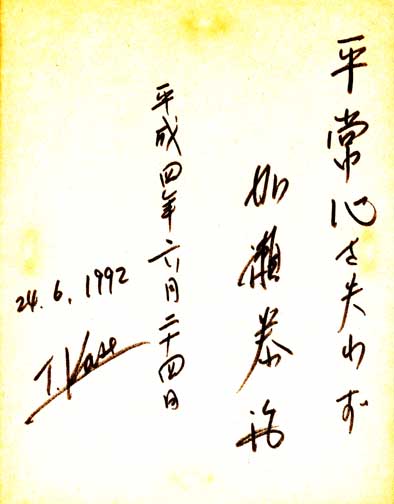 平常心を失わず
加瀬泰治
平成四年六月二十四日
24.6.1992
T. Kase